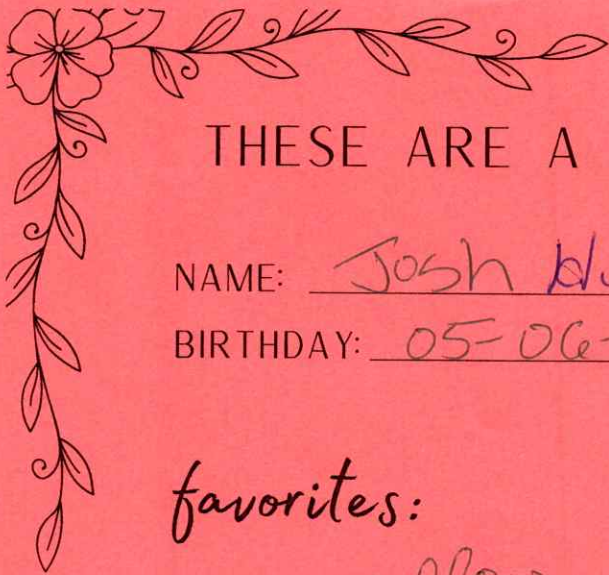 THESE ARE A
NAME: Josh
BIRTHDAY: 05-06-
favorites: